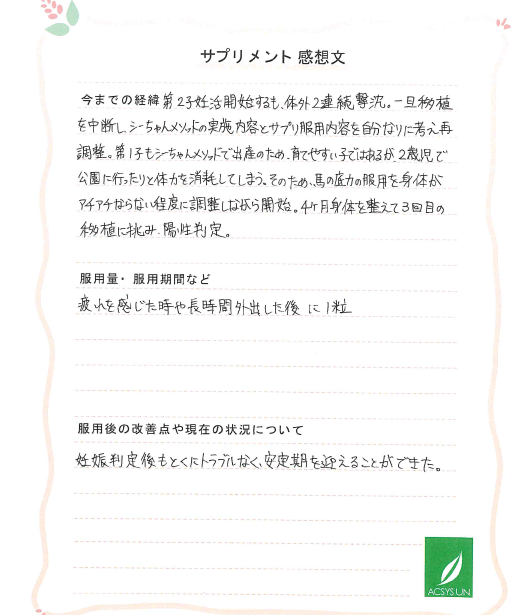 サプリメント 感想文
今までの経緯 第2子妊活開始するも、体外2連続撃沈。一旦移植
を中断し、シーちゃんメソッドの実施内容とサプリ服用内容を自分なりに考え再
調整。第1子もシーちゃんメソッドで出産のため、育てやすい子ではあるが、2歳児で
公園に行ったりと体力を消耗してしまう。そのため、馬の底力の服用を身体が
アチアチならない程度に調整しながら開始。4ヶ月身体を整えて3回目の
移植に挑み、陽性判定。
服用量・服用期間など
疲れを感じた時や長時間外出した後 に 1粒
服用後の改善点や現在の状況について
妊娠判定後もとくにトラブルなく、安定期を迎えることができた。
ACSYSUN